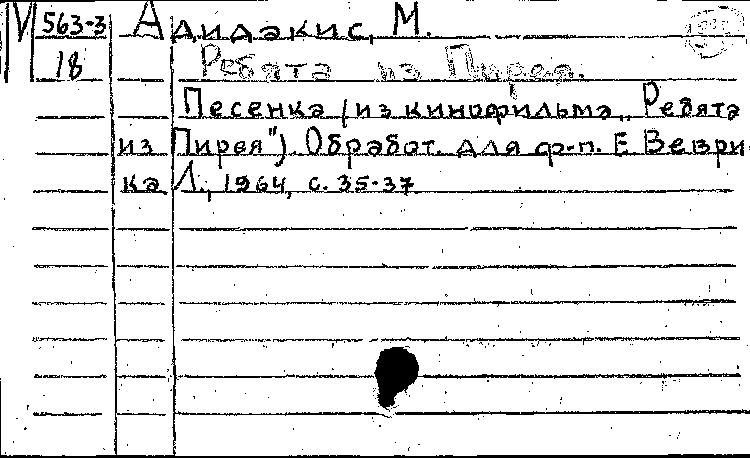 V 563-3 Адидакис, М.
18 Ребята из Пирея.
Песенка (из кинофильма „Ребята
из Пирея"). Обработ. для ф-п. Е Веври-
ка Л., 1964, с. 35-37